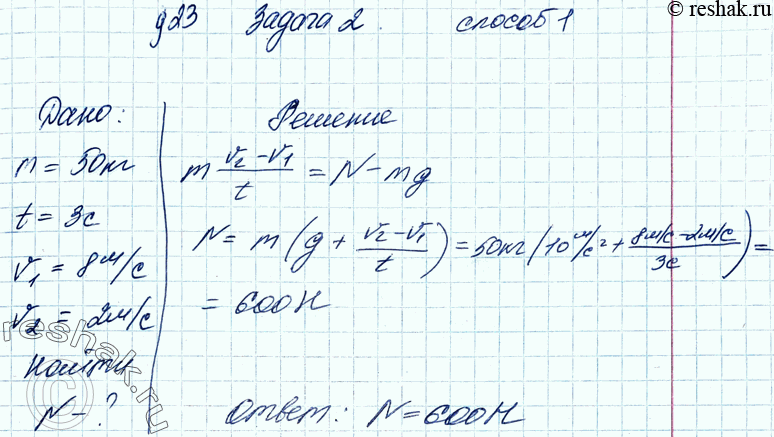 © reshak.ru
§23 Задача 2. способ 1
Дано:
m = 50кг
t = 3с
v₁ = 8м/с
v₂ = 2м/с
Найти
N - ?
Решение
m (v₂ - v₁)/t = N - mg
N = m (g + (v₂ - v₁)/t) = 50кг (10 м/с² + (8м/с - 2м/с)/3с) =
= 600Н
Ответ: N = 600Н
reshak.ru
©